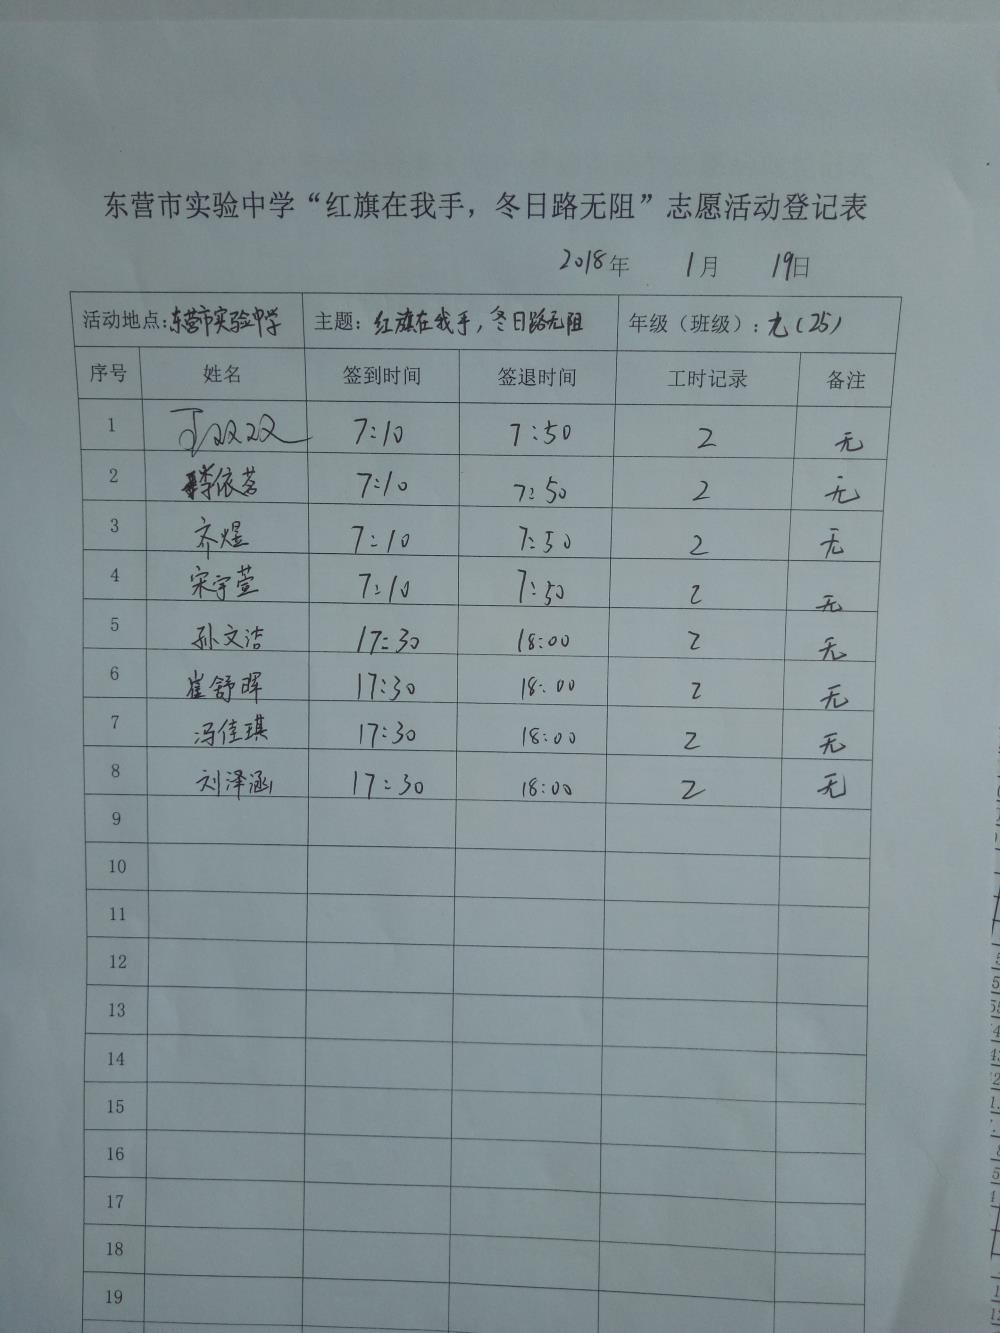 东营市实验中学“红旗在我手，冬日路无阻”志愿活动登记表
2018年 1月 19日
活动地点：东营市实验中学 主题：红旗在我手，冬日路无阻 年级（班级）：九(25)
序号 姓名 签到时间 签退时间 工时记录 备注
1 丁双双 7:10 7:50 2 无
2 李依茗 7:10 7:50 2 无
3 齐煜 7:10 7:50 2 无
4 宋宇萱 7:10 7:50 2 无
5 孙文洁 17:30 18:00 2 无
6 崔舒晖 17:30 18:00 2 无
7 冯佳琪 17:30 18:00 2 无
8 刘泽涵 17:30 18:00 2 无
9
10
11
12
13
14
15
16
17
18
19